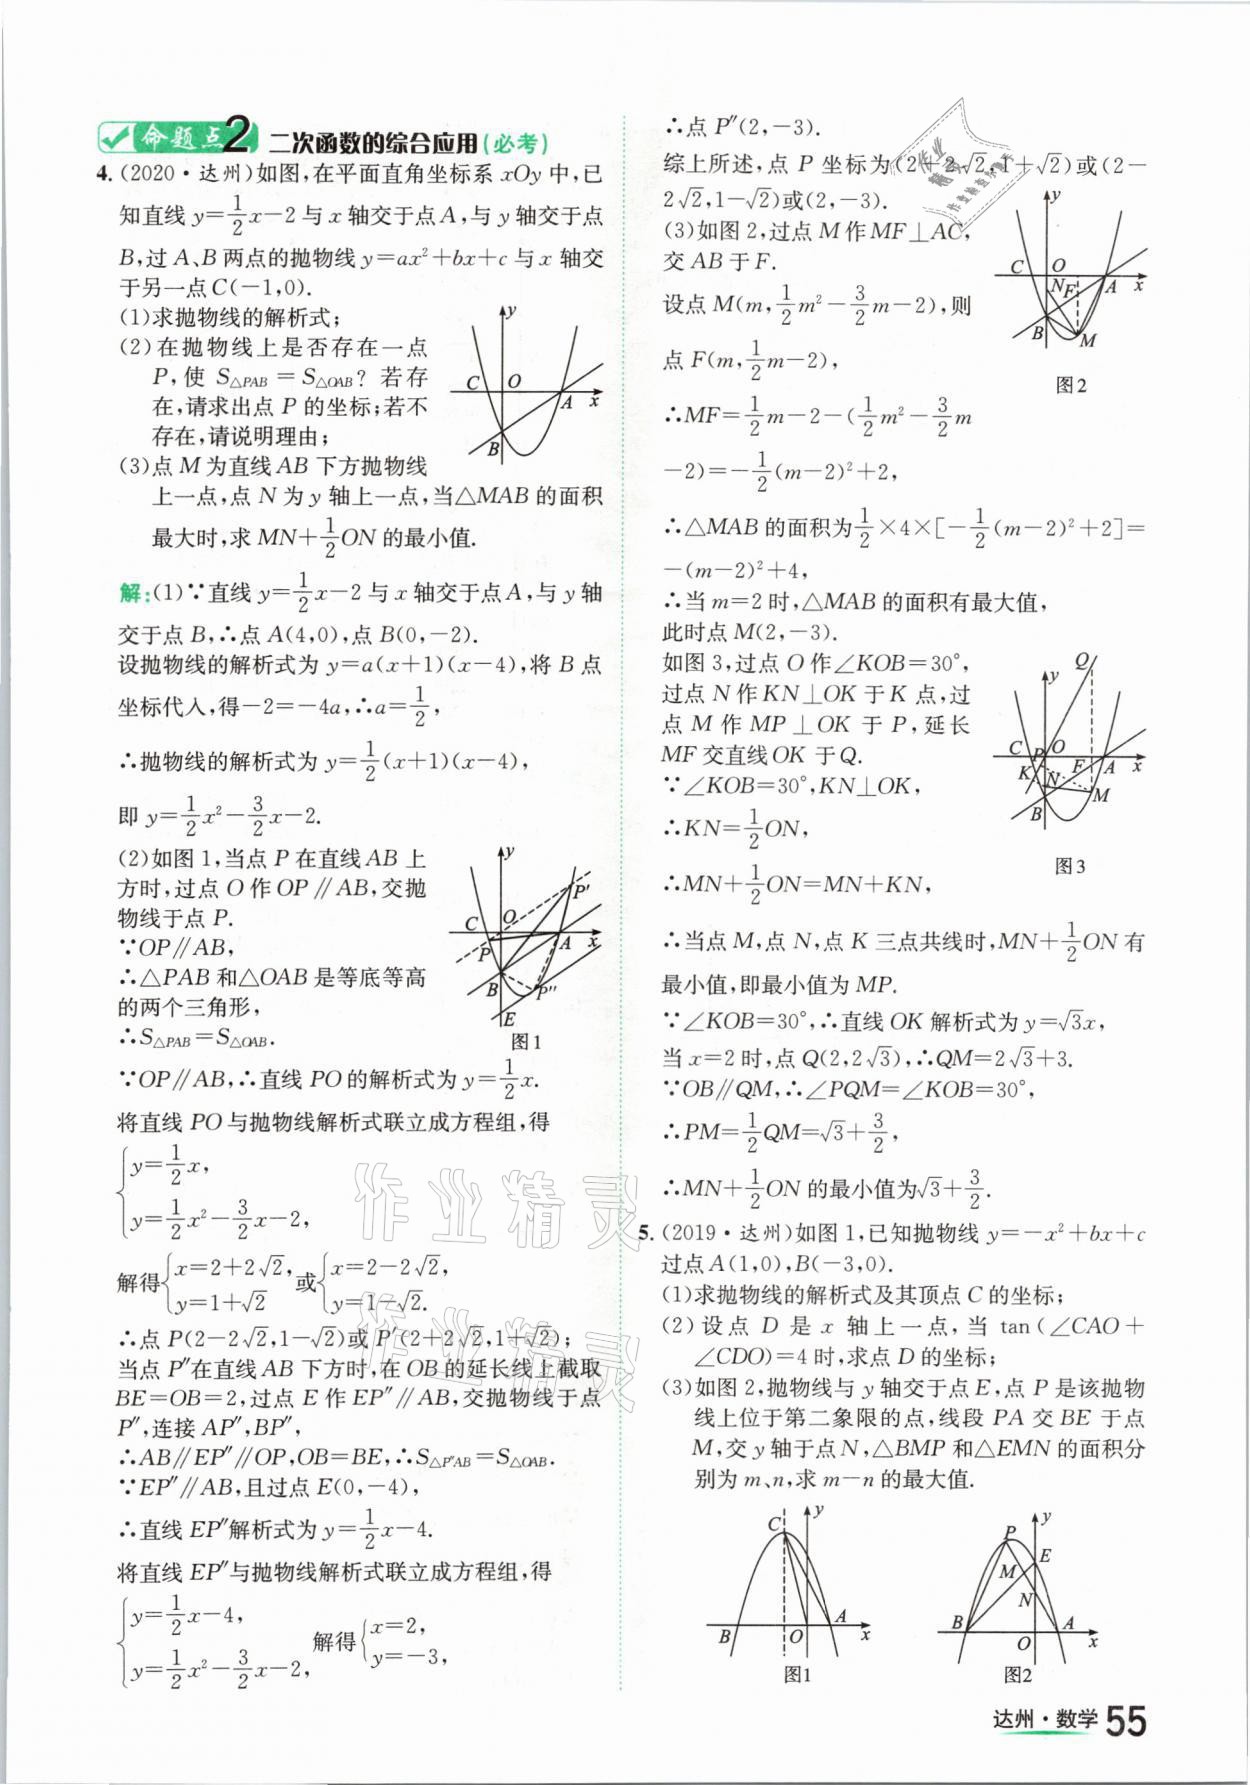 命题点2 二次函数的综合应用(必考)
4.(2020·达州)如图,在平面直角坐标系xOy中,已
知直线y=\frac{1}{2}x-2与x轴交于点A,与y轴交于点
B,过A、B两点的抛物线y=ax²+bx+c与x轴交
于另一点C(-1,0).
(1)求抛物线的解析式;
(2)在抛物线上是否存在一点
P,使S△PAB=S△OAB?若存
在,请求出点P的坐标;若不
存在,请说明理由;
(3)点M为直线AB下方抛物线
上一点,点N为y轴上一点,当△MAB的面积
最大时,求MN+\frac{1}{2}ON的最小值.
y
C O A x
B
解:(1)∵直线y=\frac{1}{2}x-2与x轴交于点A,与y轴
交于点B,∴点A(4,0),点B(0,-2).
设抛物线的解析式为y=a(x+1)(x-4),将B点
坐标代入,得-2=-4a,∴a=\frac{1}{2},
∴抛物线的解析式为y=\frac{1}{2}(x+1)(x-4),
即y=\frac{1}{2}x²-\frac{3}{2}x-2.
(2)如图1,当点P在直线AB上
方时,过点O作OP∥AB,交抛
物线于点P.
∵OP∥AB,
∴△PAB和△OAB是等底等高
的两个三角形,
∴S△PAB=S△OAB.
y
P′
C O
P A x
B P″
E
图1
∵OP∥AB,∴直线PO的解析式为y=\frac{1}{2}x.
将直线PO与抛物线解析式联立成方程组,得
{y=\frac{1}{2}x,
y=\frac{1}{2}x²-\frac{3}{2}x-2,
解得{x=2+2√2, 或{x=2-2√2,
y=1+√2 y=1-√2.
∴点P(2-2√2,1-√2)或P′(2+2√2,1+√2);
当点P″在直线AB下方时,在OB的延长线上截取
BE=OB=2,过点E作EP″∥AB,交抛物线于点
P″,连接AP″,BP″,
∴AB∥EP″∥OP,OB=BE,∴S△P″AB=S△OAB.
∵EP″∥AB,且过点E(0,-4),
∴直线EP″解析式为y=\frac{1}{2}x-4.
将直线EP″与抛物线解析式联立成方程组,得
{y=\frac{1}{2}x-4,
y=\frac{1}{2}x²-\frac{3}{2}x-2, 解得{x=2,
y=-3,
∴点P″(2,-3).
综上所述,点P坐标为(2+2√2,1+√2)或(2-
2√2,1-√2)或(2,-3).
(3)如图2,过点M作MF⊥AC,
交AB于F.
设点M(m,\frac{1}{2}m²-\frac{3}{2}m-2),则
点F(m,\frac{1}{2}m-2),
∴MF=\frac{1}{2}m-2-(\frac{1}{2}m²-\frac{3}{2}m
-2)=-\frac{1}{2}(m-2)²+2,
y
C O
N F A x
B
M
图2
∴△MAB的面积为\frac{1}{2}×4×[-\frac{1}{2}(m-2)²+2]=
-(m-2)²+4,
∴当m=2时,△MAB的面积有最大值,
此时点M(2,-3).
如图3,过点O作∠KOB=30°,
过点N作KN⊥OK于K点,过
点M作MP⊥OK于P,延长
MF交直线OK于Q.
∵∠KOB=30°,KN⊥OK,
∴KN=\frac{1}{2}ON,
∴MN+\frac{1}{2}ON=MN+KN,
y Q
C P O
K F A x
N
B M
图3
∴当点M,点N,点K三点共线时,MN+\frac{1}{2}ON有
最小值,即最小值为MP.
∵∠KOB=30°,∴直线OK解析式为y=√3x,
当x=2时,点Q(2,2√3),∴QM=2√3+3.
∵OB∥QM,∴∠PQM=∠KOB=30°,
∴PM=\frac{1}{2}QM=√3+\frac{3}{2},
∴MN+\frac{1}{2}ON的最小值为√3+\frac{3}{2}.
5.(2019·达州)如图1,已知抛物线y=-x²+bx+c
过点A(1,0),B(-3,0).
(1)求抛物线的解析式及其顶点C的坐标;
(2)设点D是x轴上一点,当tan(∠CAO+
∠CDO)=4时,求点D的坐标;
(3)如图2,抛物线与y轴交于点E,点P是该抛物
线上位于第二象限的点,线段PA交BE于点
M,交y轴于点N,△BMP和△EMN的面积分
别为m、n,求m-n的最大值.
C y
B O A x
图1
P y
E
M
N
B O A x
图2
达州·数学 55
作业精灵
作业精灵